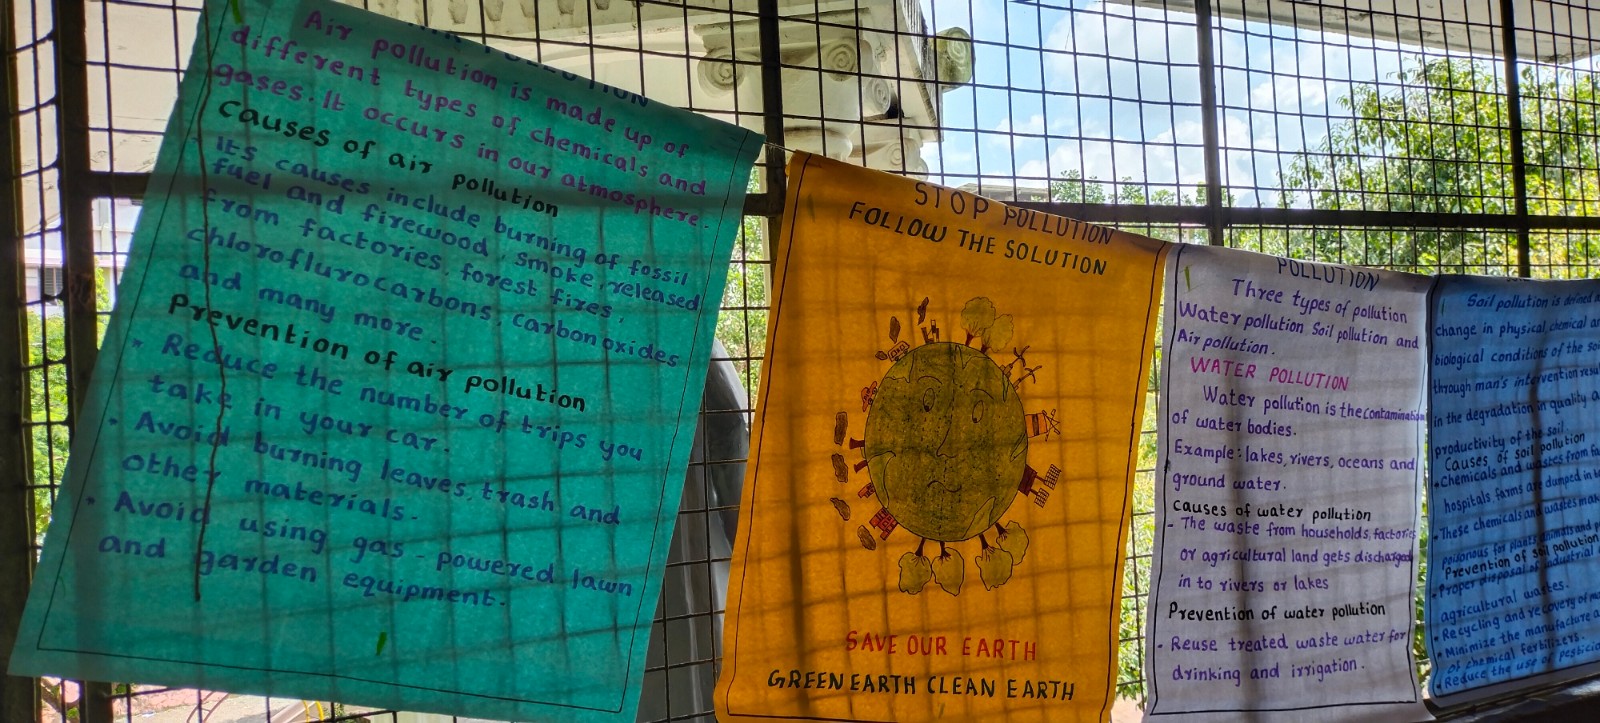 AIR POLLUTION
Air pollution is made up of
different types of chemicals and
gases. It occurs in our atmosphere.
Causes of air pollution
Its causes include burning of fossil
fuel and firewood, smoke, released
from factories, forest fires,
chloroflurocarbons, carbon oxides
and many more.
Prevention of air pollution
* Reduce the number of trips you
take in your car.
• Avoid burning leaves, trash and
other materials.
• Avoid using gas - powered lawn
and garden equipment.
STOP POLLUTION
FOLLOW THE SOLUTION
SAVE OUR EARTH
GREEN EARTH CLEAN EARTH
POLLUTION
Three types of pollution
Water pollution Soil pollution and
Air pollution.
WATER POLLUTION
Water pollution is the contamination
of water bodies.
Example: lakes, rivers, oceans and
ground water.
Causes of water pollution
- The waste from households, factories
or agricultural land gets discharged
in to rivers or lakes
Prevention of water pollution
- Reuse treated waste water for
drinking and irrigation.
Soil pollution is defined
change in physical, chemical
biological conditions of the
through man's intervention
in the degradation in quality
productivity of the soil.
Causes of soil pollution
• Chemicals and wastes from
hospitals, farms are dumped in
• These chemicals and wastes
poisonous for plants, animals and
Prevention of soil pollution
• Proper disposal of industrial
agricultural wastes.
• Recycling and recovery of
• Minimize the manufacture
of chemical fertilizers.
• Reduce the use of